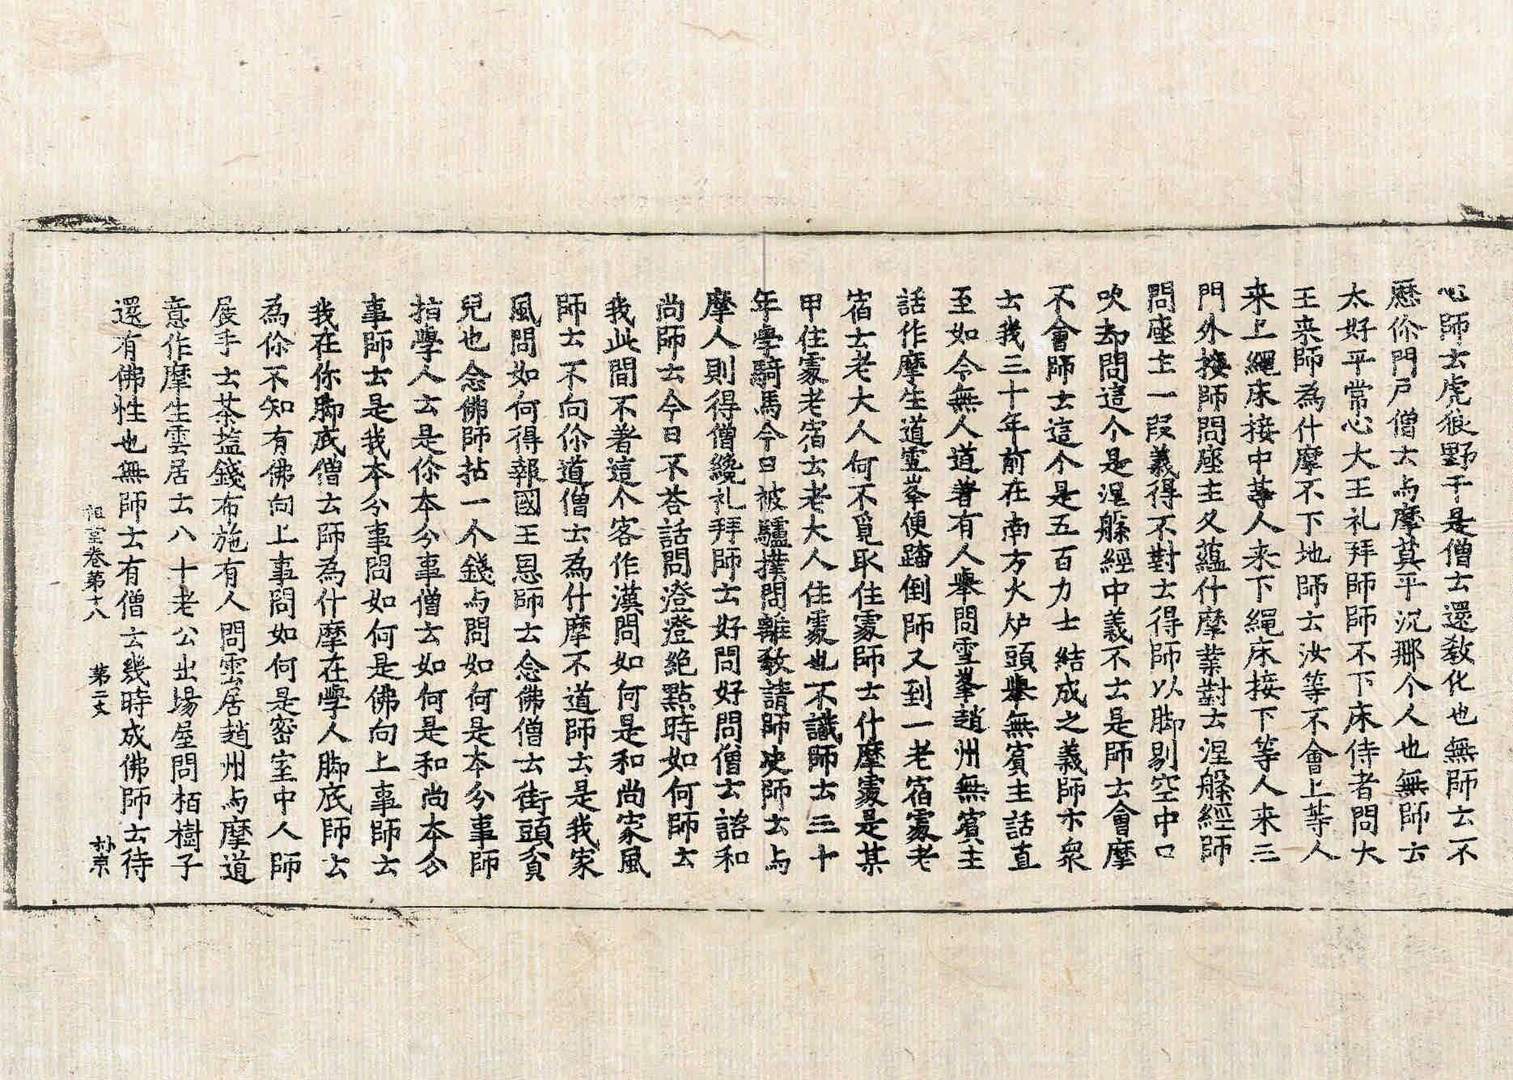 心師云虎狼野干是僧云還教化也無師云不
歷你門戶僧云与摩莫平沉那个人也無師云
太好平常心大王礼拜師師不下床侍者問大
王来師為什摩不下地師云汝等不會上等人
来上繩床接中等人来下繩床接下等人来三
門外接師問座主久蘊什摩業對云涅槃經師
問座主一段義得不對云得師以脚剔空中口
吹却問這个是涅槃經中義不云是師云會摩
不會師云這个是五百力士結成之義師示衆
云我三十年前在南方火炉頭舉無賓主話直
至如今無人道著有人舉問雪峯趙州無賓主
話作摩生道雪峯便踏倒師又到一老宿處老
宿云老大人何不覓取住處師云什摩處是某
甲住處老宿云老大人住處也不識師云三十
年學騎馬今日被驢撲問離教請師决師云与
摩人則得僧纔礼拜師云好問好問僧云諮和
尚師云今日不荅話問澄澄絶點時如何師云
我此間不着這个客作漢問如何是和尚家風
師云不向你道僧云為什摩不道師云是我家
風問如何得報國王恩師云念佛僧云街頭貧
兒也念佛師拈一个錢与問如何是本分事師
指學人云是你本分事僧云如何是和尚本分
事師云是我本分事問如何是佛向上事師云
我在你脚底僧云師為什摩在學人脚底師云
為你不知有佛向上事問如何是密室中人師
展手云茶塩錢布施有人問雲居趙州与摩道
意作摩生雲居云八十老公出場屋問栢樹子
還有佛性也無師云有僧云幾時成佛師云待
祖堂卷第十八 第二丈